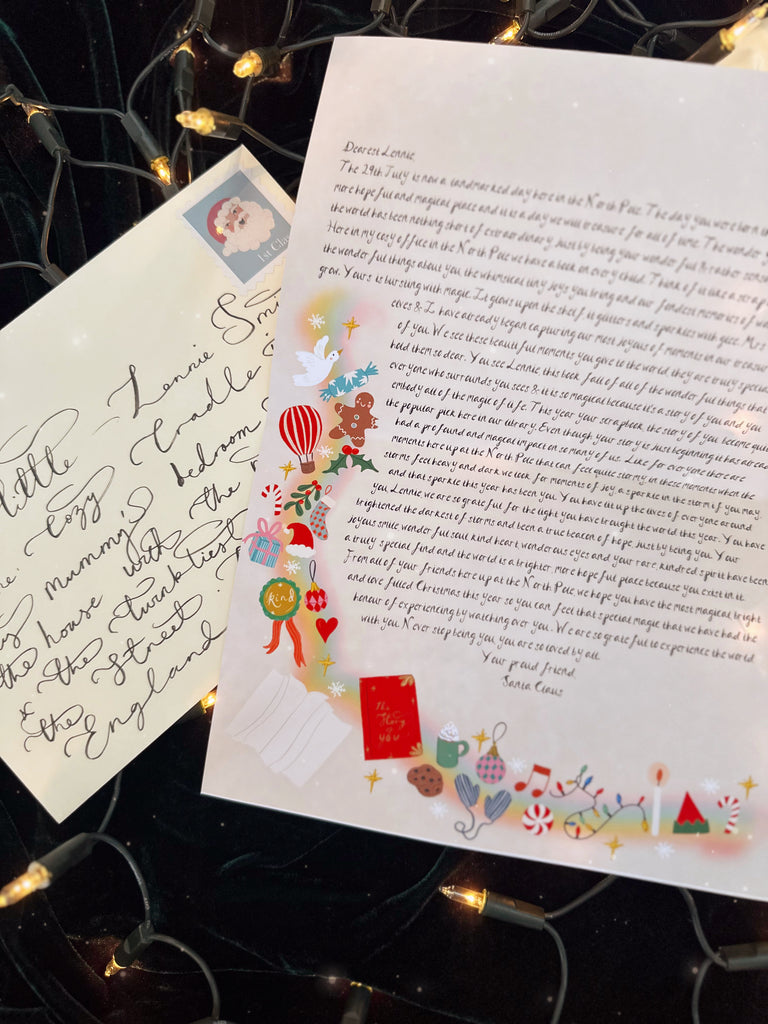 1st Cla
Lennie Smi
little
Cradle
Cozy
bedroom
mummy's
the
house with
the
& the twinkliest
the Street.
England
Dearest Lennie,
The 29th July is now a landmarked day here in the North Pole. The day you were born th
more hopeful and magical place and it is a day we will treasure for all of time. The wonder y
the world has been nothing short of extraordinary. Just by being your wonderful &
Here in my cosy office in the North Pole we have a book on every child. Think of it like a scrap
the wonderful things about you the whimsical tiny joys you bring and our fondest memories of
grow. Yours is bursting with magic. It glows upon the shelf, it glitters and sparkles with glee. Mrs
elves & I, have already began capturing our most joyous of moments in our treasur
of you. We see these beautiful moments you give to the world, they are truly special
hold them so dear. You see Lennie this book full of all of the wonderful things that
everyone who surrounds you sees & it is so magical because it's a story of you and you
embody all of the magic of life. This year your scrapbook the story of you became quit
the popular pick here in our library. Even though your story is just beginning it has already
had a profound and magical impact on so many of us. Like for everyone there are
moments here up at the North Pole that can feel quite stormy, in these moments when the
storms feel heavy and dark we look for moments of joy, a sparkle in the storm if you may
and that sparkle this year has been you. You have lit up the lives of everyone around
you. Lennie, we are so grateful for the light you have brought the world this year. You have
brightened the darkest of storms and been a true beacon of hope, just by being you. Your
joyous smile wonderful soul kind heart wonderous eyes and your rare, kindred spirit have been
a truly special find and the world is a brighter, more hopeful place because you exist in it.
From all of your friends here up at the North Pole, we hope you have the most magical bright
and love filled Christmas this year so you can feel that special magic that we have had the
honour of experiencing by watching over you. We are so grateful to experience the world
with you. Never stop being you, you are so loved by all.
Your proud friend,
Santa Claus
kind
The
Story
of
you